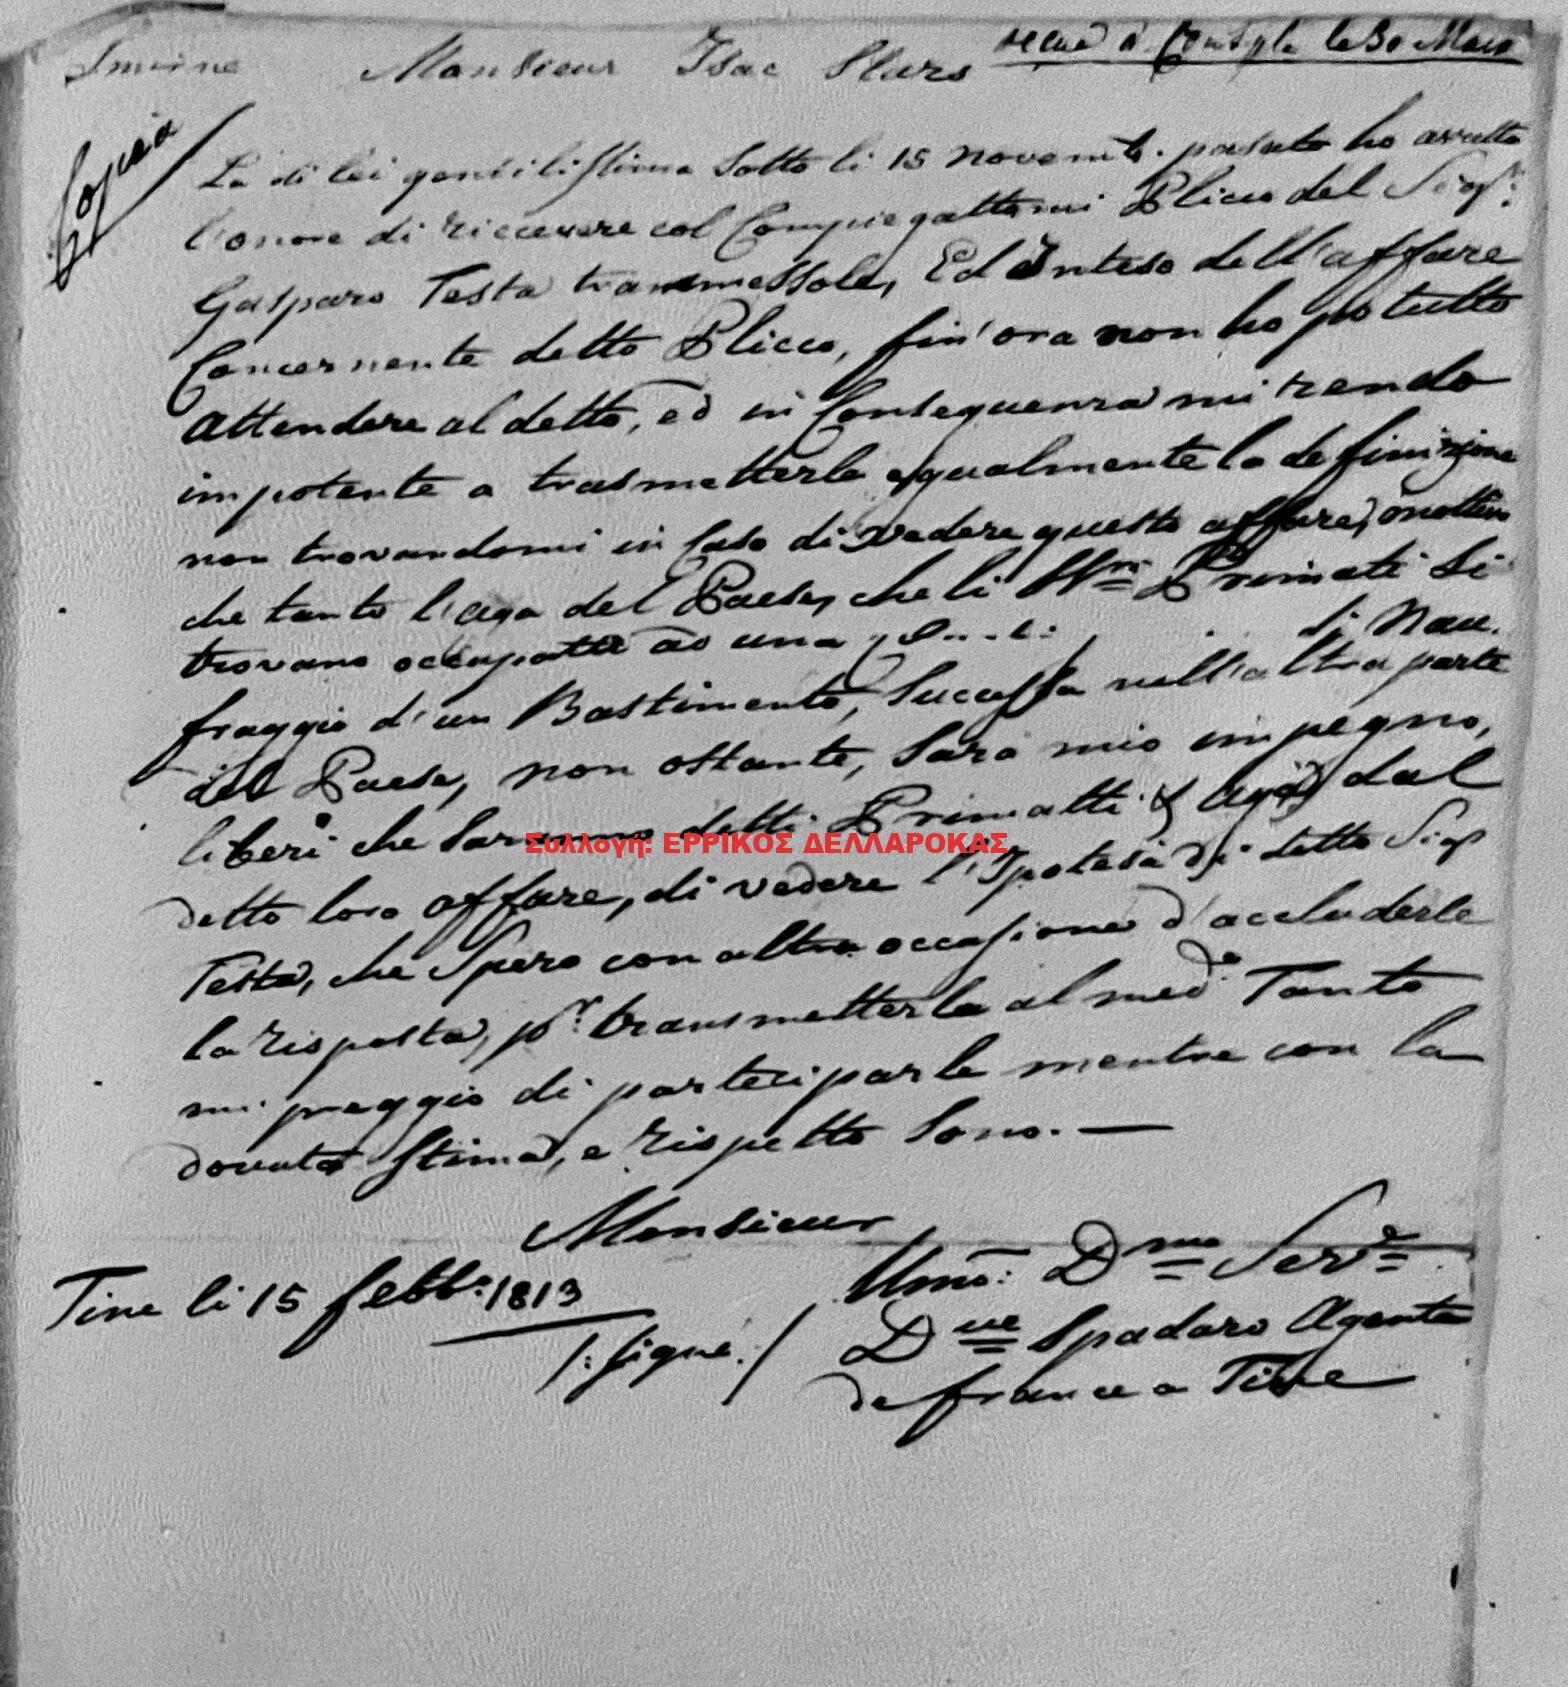 Smirne Monsieur Isac Slurs recue a Constple le 30 Mars
Copia
La di lei gentilissima Sotto li 15 novemb. passato ho avutto
l'onore di riccevere col Compiegattomi Plicco del Sigr:
Gasparo Testa transmessole, Ed Inteso dell'affare
Concernente detto Plicco, fin'ora non ho potutto
attendere al detto, ed in Consequenza mi rendo
impotente a trasmetterle egualmente la definizione
non trovandomi in Caso di vedere questo affare,
che tanto l'aga del Paese, che li Primati Si
trovano occupatti ad una di Nau.
fraggio d'un Bastimento, Successa nell'altra parte
del Paese, non ostante, Sarà mio impegno,
liberi che Saranno detti Primatti & Agà dal
detto loro affare, di vedere l'Ipotesa di detto Sigr
Testa, che Spero con altra occasione d'accluderle
la risposta, pr. transmetterla al medo. Tanto
mi preggio di parteciparle mentre con la
dovuta Stima, e rispetto Sono. —
Monsieur
Tine li 15 febbo. 1813
Umo: Dmo Serve
/: signé. / Dque Spadaro Agente
de france a Tine
Συλλογή: ΕΡΡΙΚΟΣ ΔΕΛΛΑΡΟΚΑΣ